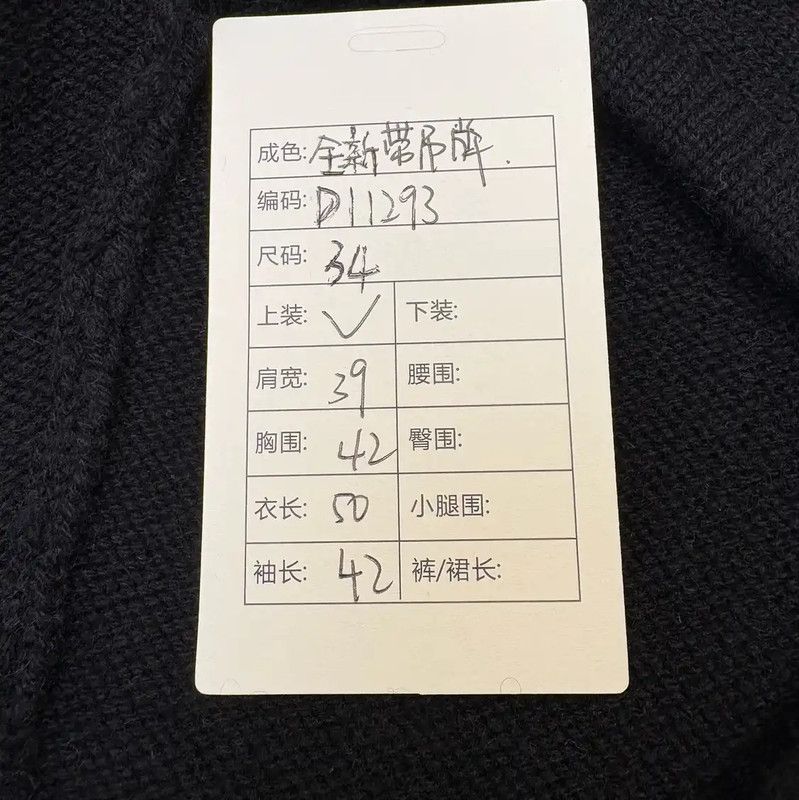 成色: 全新带吊牌.
编码: D11293
尺码: 34
上装: ✓ 下装:
肩宽: 39 腰围:
胸围: 42 臀围:
衣长: 50 小腿围:
袖长: 42 裤/裙长: